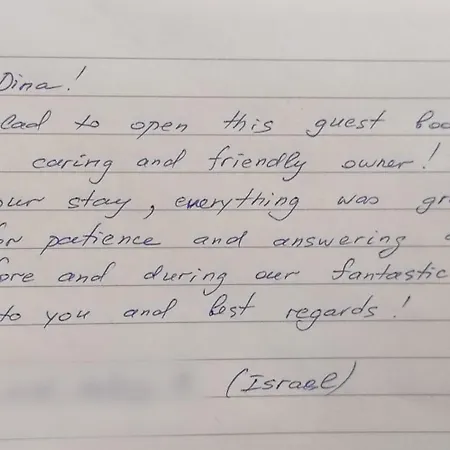 Dina!
lad to open this guest boo
caring and friendly owner!
our stay, everything was gr
or patience and answering
ore and during our fantastic
to you and best regards!
(Israel)